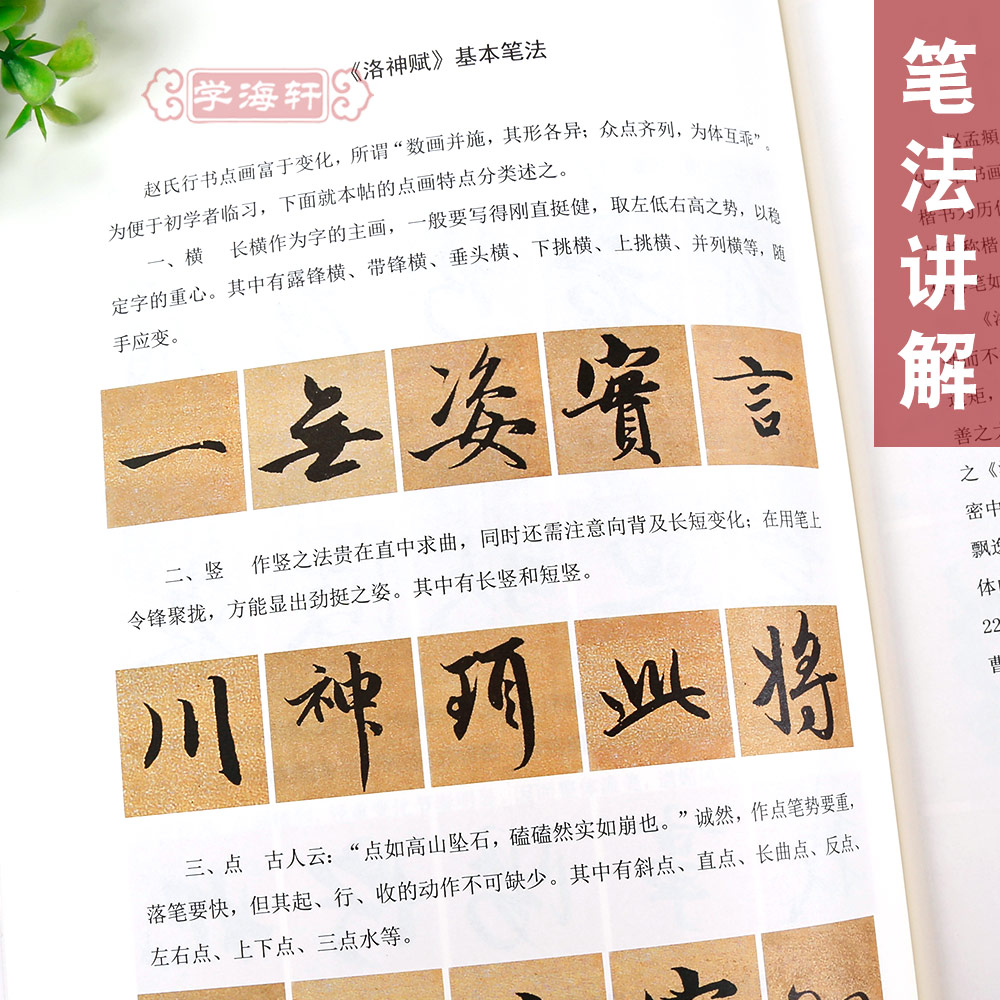 《洛神赋》基本笔法
学海轩
赵氏行书点画富于变化，所谓“数画并施，其形各异；众点齐列，为体互乖”。
为便于初学者临习，下面就本帖的点画特点分类述之。
一、横 长横作为字的主画，一般要写得刚直挺健，取左低右高之势，以稳
定字的重心。其中有露锋横、带锋横、垂头横、下挑横、上挑横、并列横等，随
手应变。
一 無 姿 實 言
二、竖 作竖之法贵在直中求曲，同时还需注意向背及长短变化；在用笔上
令锋聚拢，方能显出劲挺之姿。其中有长竖和短竖。
川 神 此 將
三、点 古人云：“点如高山坠石，磕磕然实如崩也。”诚然，作点笔势要重，
落笔要快，但其起、行、收的动作不可缺少。其中有斜点、直点、长曲点、反点、
左右点、上下点、三点水等。
笔法讲解
赵孟頫
书画
楷书为历代
称楷
笔如
而不
炬，
善之
之《
密中
飘逸
体
22
曹